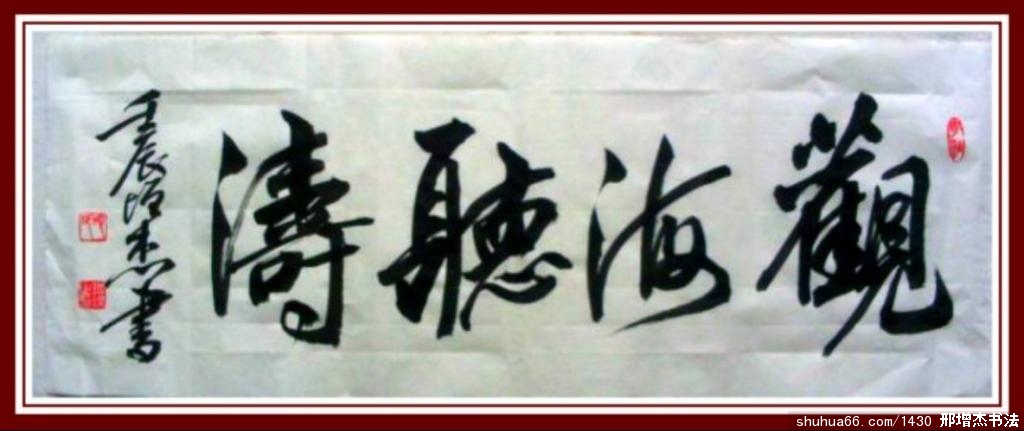 觀海聽濤
壬辰增杰書
shuhua66.com/1430 邢增杰书法